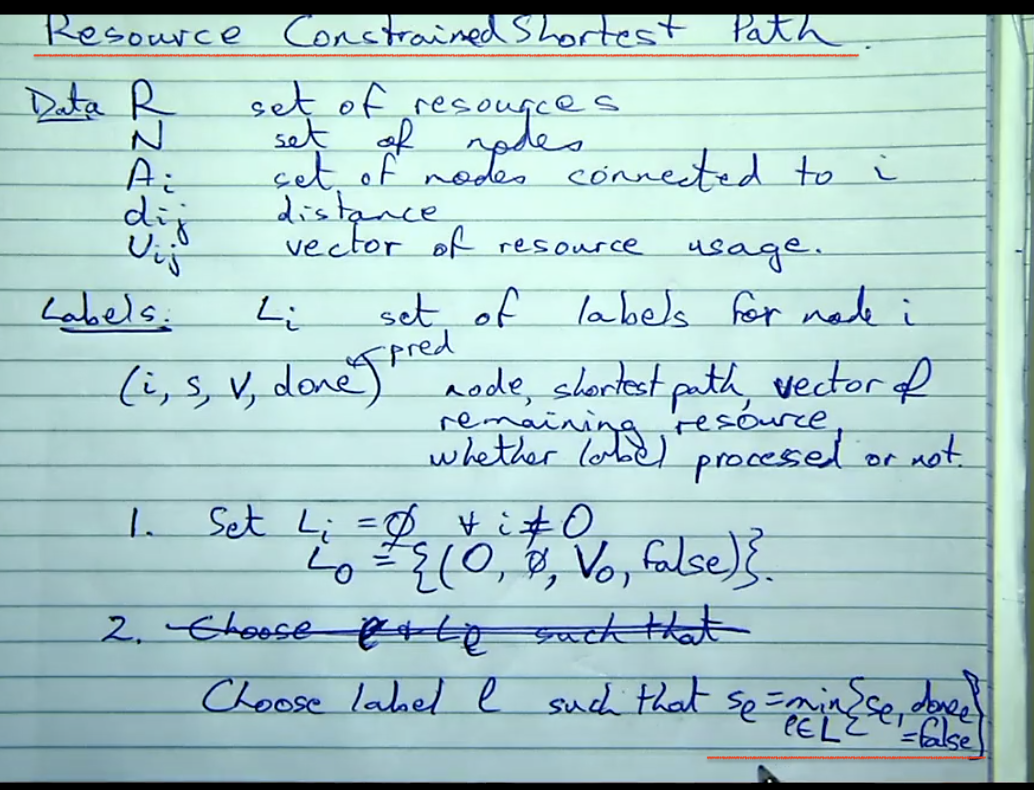 Resource Constrained Shortest Path.
Data R set of resources
N set of nodes
Ai set of nodes connected to i
dij distance
Vij vector of resource usage.
Labels: Li set of labels for node i
pred
(i, s, v, done) node, shortest path, vector of
remaining resource,
whether label processed or not.
1. Set Li = ∅ ∀ i ≠ 0
L0 = {(0, ∅, V0, false)}.
2. Choose such that
Choose label l such that sl = min {sl, donel
l∈L = false}